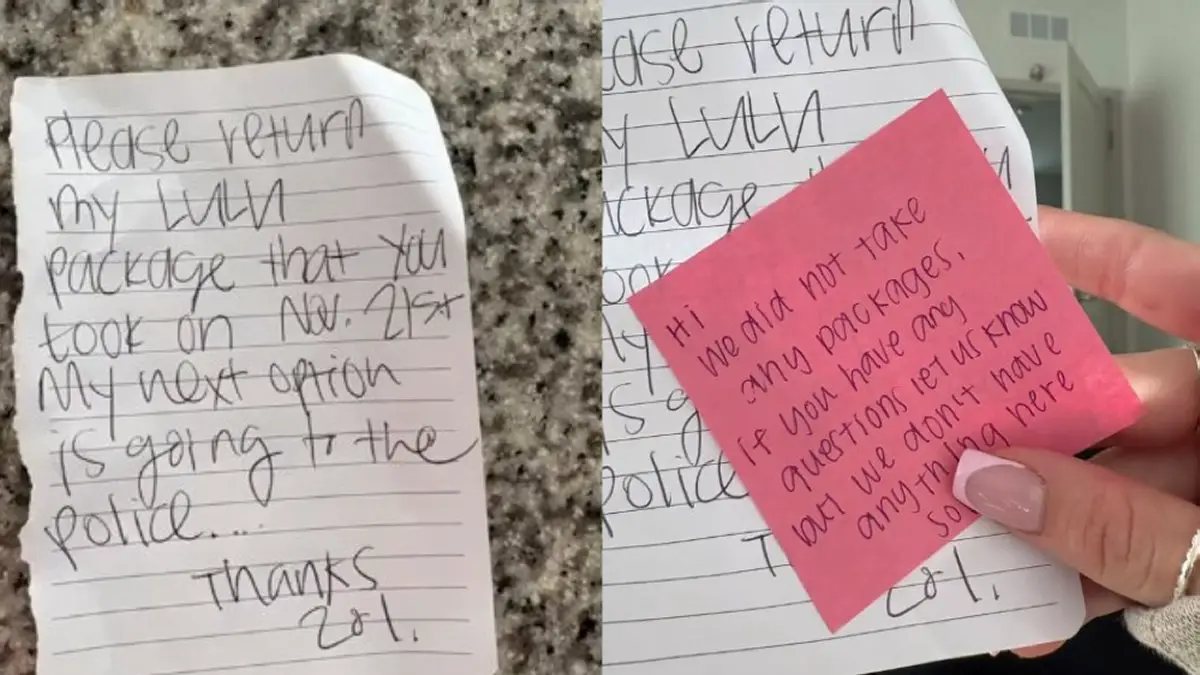 Please return
my LULU
package that you
took on Nov. 21st
My next option
is going to the
police....
Thanks
201.
ease return
y LULU
ackage
ook
police
201.
Hi
We did not take
any packages,
if you have any
questions let us know
but we don't have
anything here